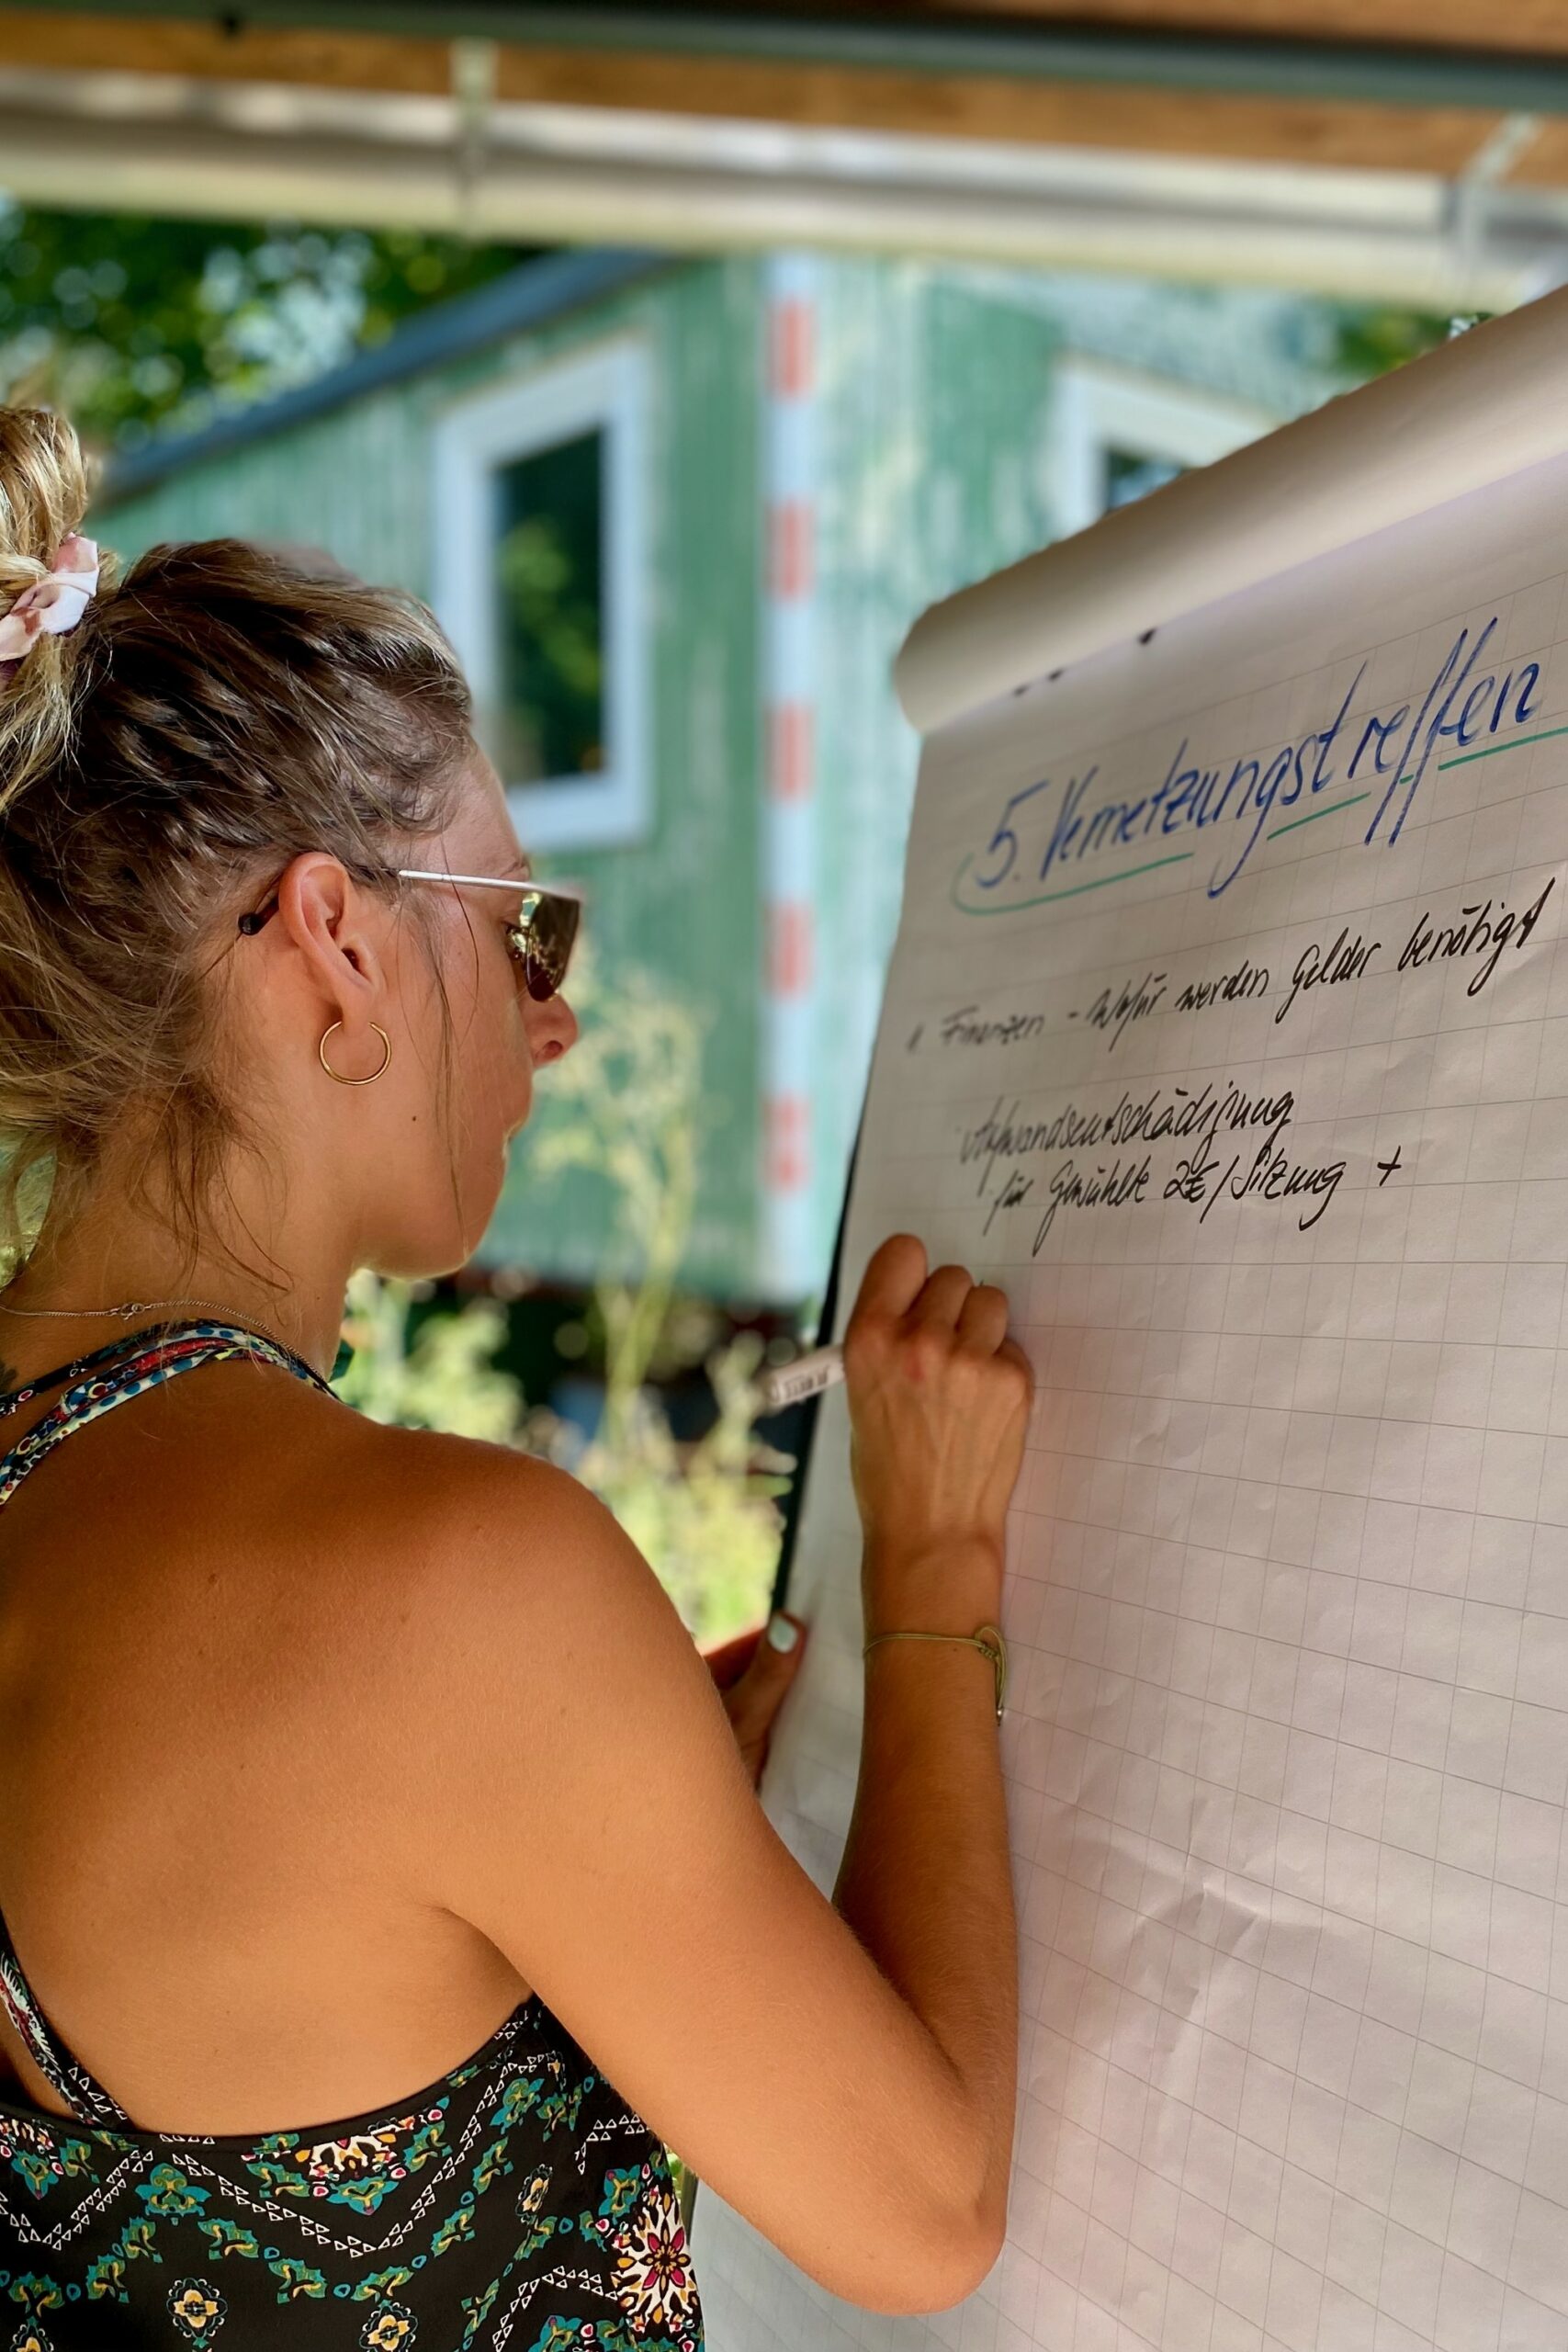 5. Vernetzungstreffen
1. Finanzen - Wofür werden Gelder benötigt
Aufwandsentschädigung
für Gewählte 2€/Sitzung +